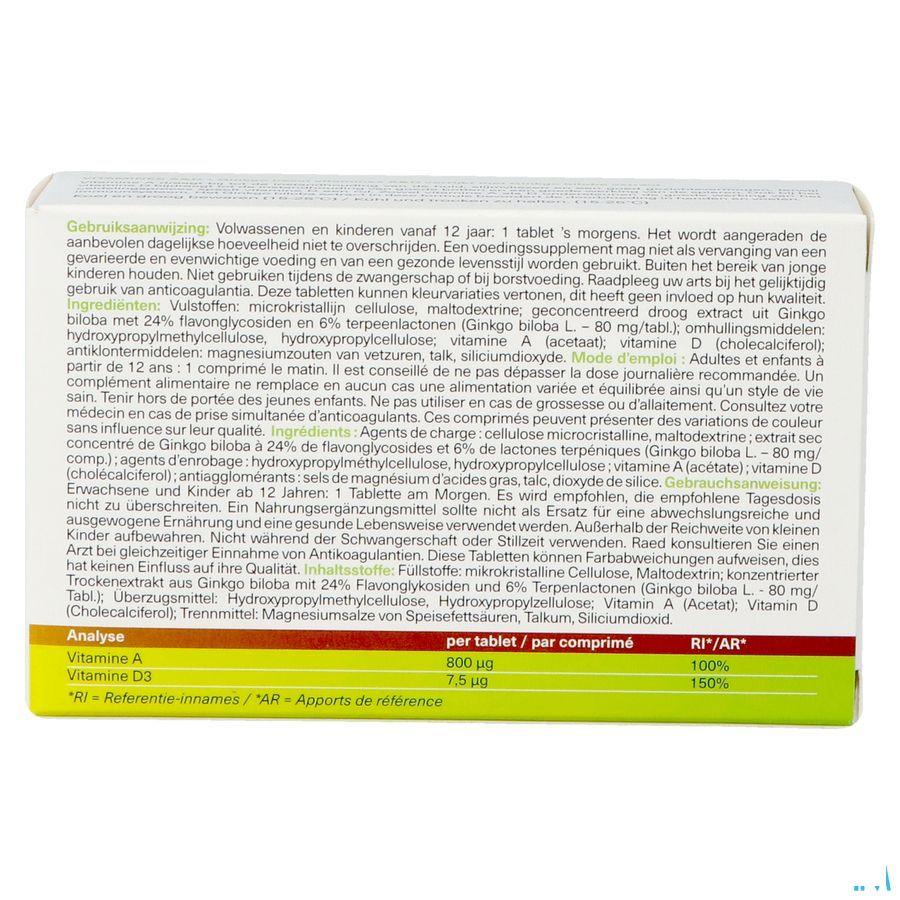 Koel en droog bewaren (15-25°C) / Kühl und trocken zu halten: (15-25°C)
Gebruiksaanwijzing: Volwassenen en kinderen vanaf 12 jaar: 1 tablet 's morgens. Het wordt aangeraden de
aanbevolen dagelijkse hoeveelheid niet te overschrijden. Een voedingssupplement mag niet als vervanging van een
gevarieerde en evenwichtige voeding en van een gezond levensstijl worden gebruikt. Buiten het bereik van jonge
kinderen houden. Niet gebruiken tijdens de zwangerschap of bij borstvoeding. Raadpleeg uw arts bij het gelijktijdig
gebruik van anticoagulantia. Deze tabletten kunnen kleurvariaties vertonen, dit heeft geen invloed op hun kwaliteit.
Ingrediënten: Vulstoffen: microkristallijn cellulose, maltodextrine; geconcentreerd droog extract uit Ginkgo
biloba met 24% flavonglycosiden en 6% terpeenlactonen (Ginkgo biloba L. – 80 mg/tabl.); omhullingsmiddelen:
hydroxypropylmethylcellulose, hydroxypropylcellulose; vitamine A (acetaat); vitamine D (cholecalciferol);
antiklontermiddelen: magnesiumzouten van vetzuren, talk, siliciumdioxyde. Mode d'emploi : Adultes et enfants à
partir de 12 ans : 1 comprimé le matin. Il est conseillé de ne pas dépasser la dose journalière recommandée. Un
complément alimentaire ne remplace en aucun cas une alimentation variée et équilibrée ainsi qu'un style de vie
sain. Tenir hors de portée des jeunes enfants. Ne pas utiliser en cas de grossesse ou d'allaitement. Consultez votre
médecin en cas de prise simultanée d'anticoagulants. Ces comprimés peuvent présenter des variations de couleur
sans influence sur leur qualité. Ingrédients : Agents de charge : cellulose microcristalline, maltodextrine ; extrait sec
concentré de Ginkgo biloba à 24% de flavonglycosides et 6% de lactones terpéniques (Ginkgo biloba L. – 80 mg/
comp.) ; agents d'enrobage : hydroxypropylméthylcellulose, hydroxypropylcellulose ; vitamine A (acétate) ; vitamine D
(cholécalciferol) ; antiagglomérants : sels de magnésium d'acides gras, talc, dioxyde de silice. Gebrauchsanweisung:
Erwachsene und Kinder ab 12 Jahren: 1 Tablette am Morgen. Es wird empfohlen, die empfohlene Tagesdosis
nicht zu überschreiten. Ein Nahrungsergänzungsmittel sollte nicht als Ersatz für eine abwechslungsreiche und
ausgewogene Ernährung und eine gesunde Lebensweise verwendet werden. Außerhalb der Reichweite von kleinen
Kinder aufbewahren. Nicht während der Schwangerschaft oder Stillzeit verwenden. Raed konsultieren Sie einen
Arzt bei gleichzeitiger Einnahme von Antikoagulantien. Diese Tabletten können Farbabweichungen aufweisen, dies
hat keinen Einfluss auf ihre Qualität. Inhaltsstoffe: Füllstoffe: mikrokristalline Cellulose, Maltodextrin; konzentrierter
Trockenextrakt aus Ginkgo biloba mit 24% Flavonglykosiden und 6% Terpenlactonen (Ginkgo biloba L. - 80 mg/
Tabl.); Überzugsmittel: Hydroxypropylmethylcellulose, Hydroxypropylzellulose; Vitamin A (Acetat); Vitamin D
(Cholecalciferol); Trennmittel: Magnesiumsalze von Speisefettsäuren, Talkum, Siliciumdioxid.
Analyse per tablet / par comprimé RI*/AR*
Vitamine A 800 µg 100%
Vitamine D3 7,5 µg 150%
*RI = Referentie-innames / *AR = Apports de référence